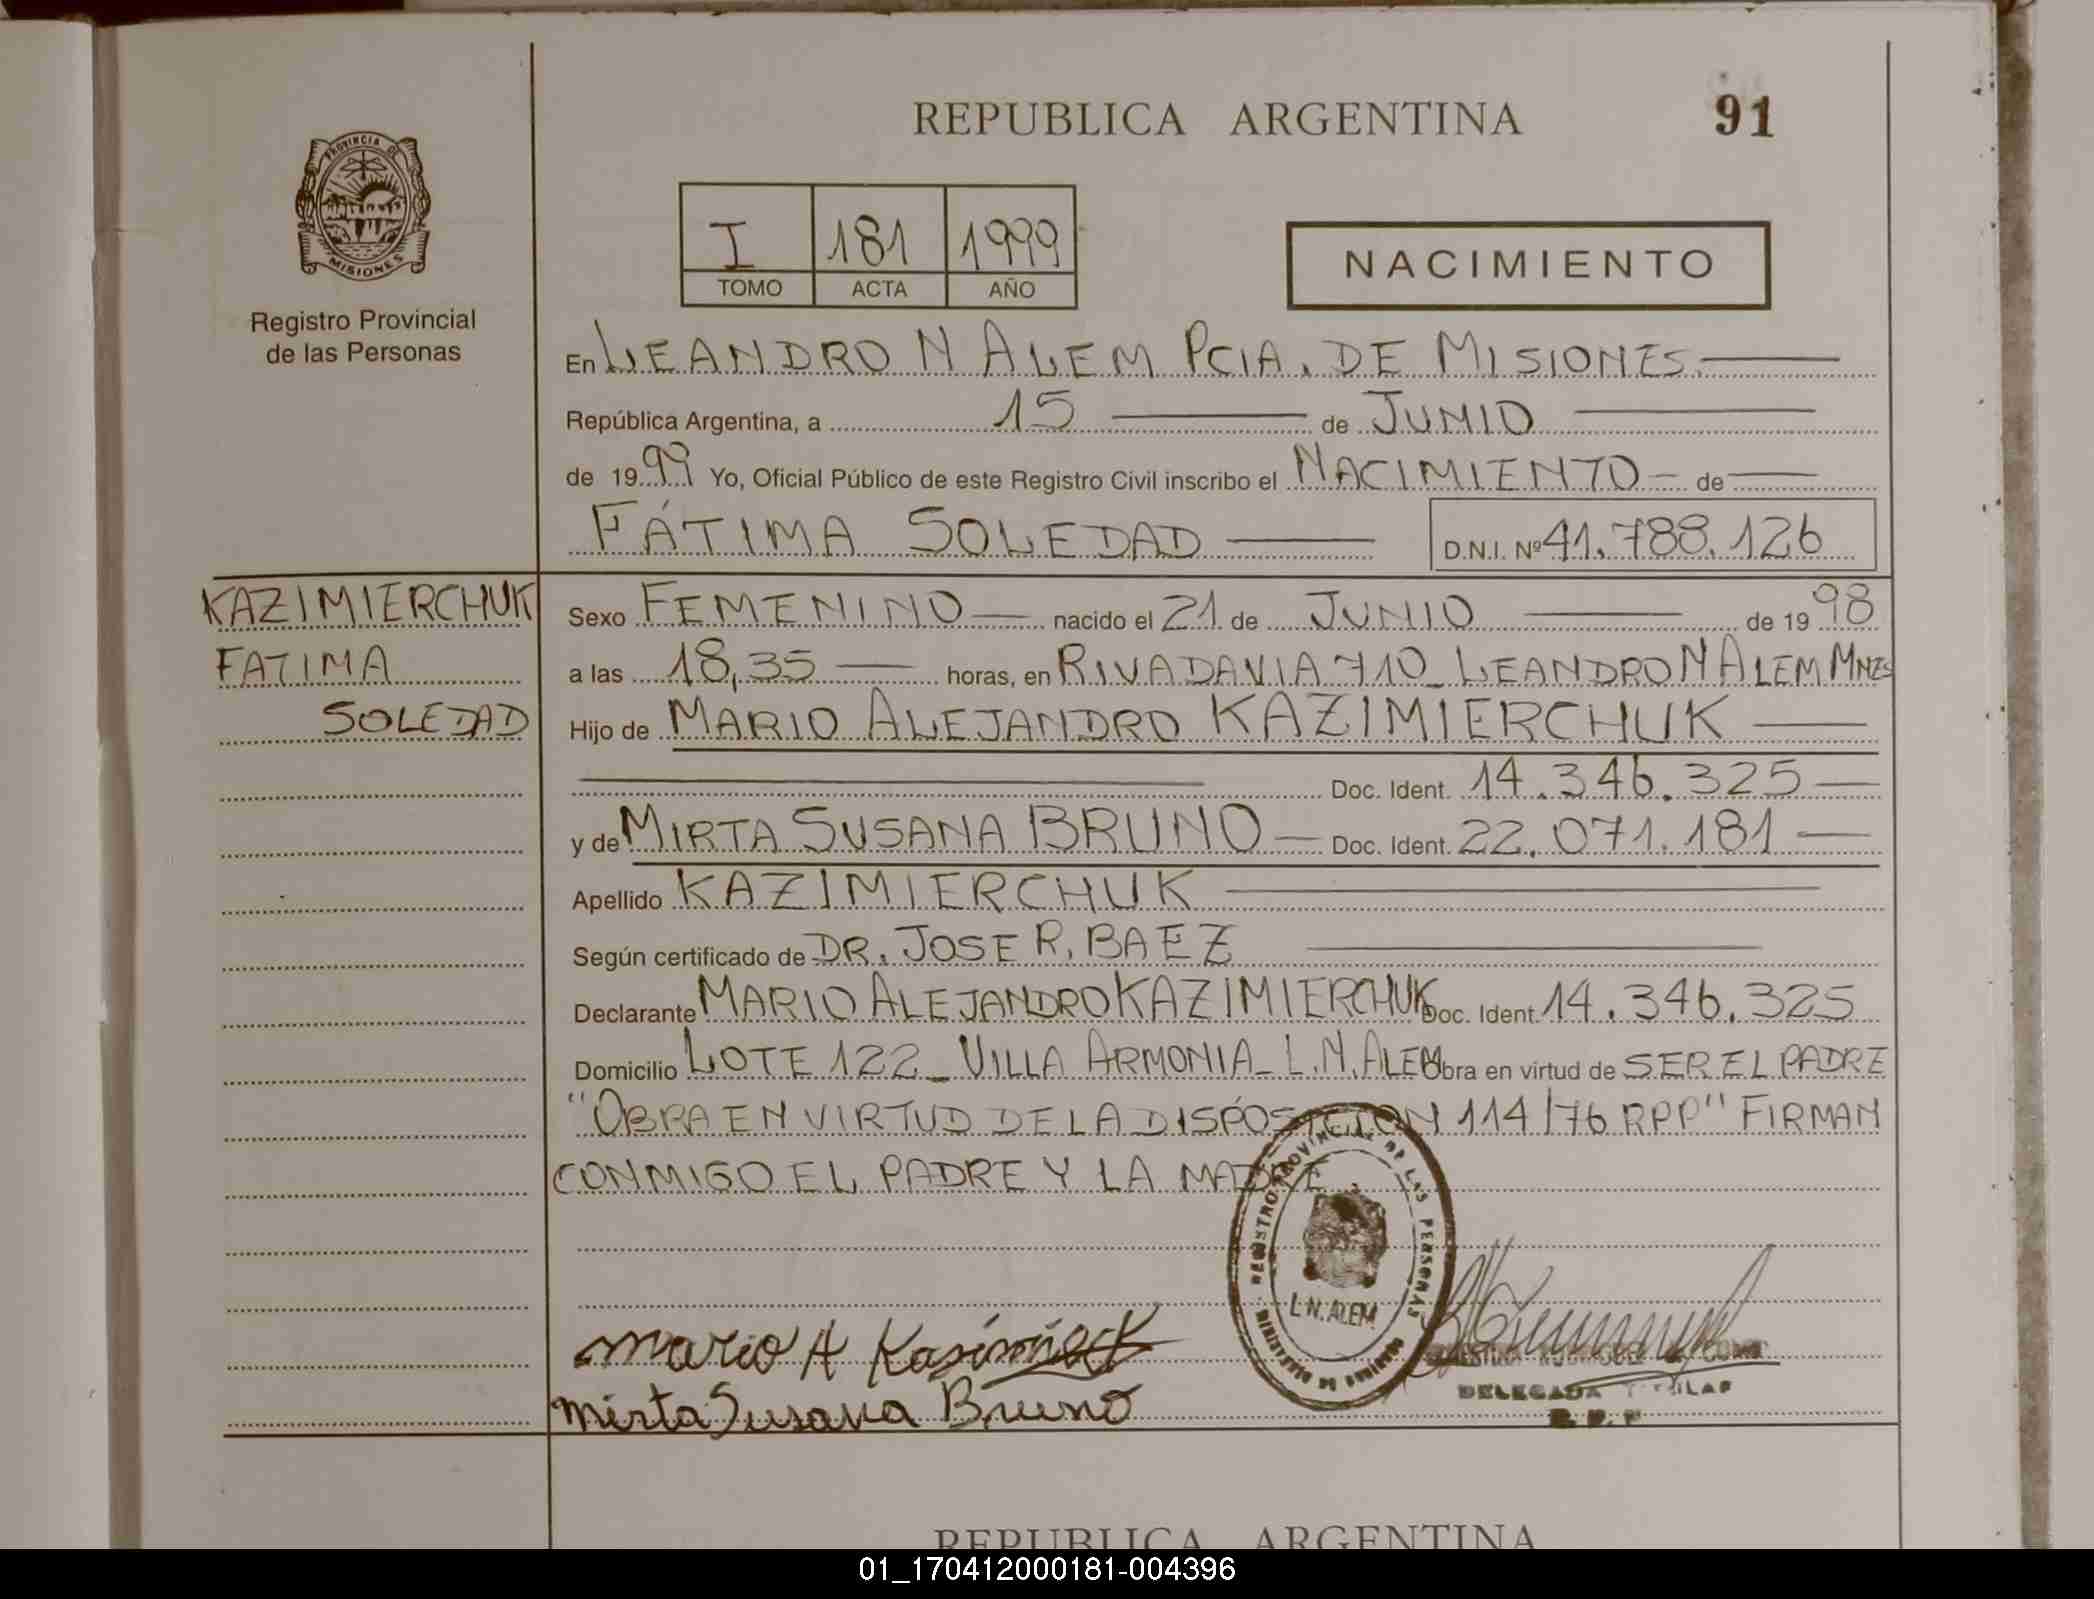 REPUBLICA ARGENTINA
91
PROVINCIA DE
MISIONES
Registro Provincial
de las Personas
I 181 1999
TOMO ACTA AÑO
NACIMIENTO
En LEANDRO N ALEM PCIA. DE MISIONES.
República Argentina, a 15 de JUNIO
de 1999 Yo, Oficial Público de este Registro Civil inscribo el NACIMIENTO - de
FÁTIMA SOLEDAD D.N.I. Nº 41.788.126
KAZIMIERCHUK
FATIMA
SOLEDAD
Sexo FEMENINO nacido el 21 de JUNIO de 1998
a las 18,35 horas, en RIVADAVIA 710_ LEANDRO N ALEM MNES
Hijo de MARIO ALEJANDRO KAZIMIERCHUK
Doc. Ident. 14.346.325
y de MIRTA SUSANA BRUNO Doc. Ident. 22.071.181
Apellido KAZIMIERCHUK
Según certificado de DR. JOSE R. BAEZ
Declarante MARIO ALEJANDRO KAZIMIERCHUK Doc. Ident. 14.346.325
Domicilio LOTE 122_ VILLA ARMONIA_ L.N.ALEM Obra en virtud de SER EL PADRE
"OBRA EN VIRTUD DE LA DISPOSICION 114/76 RPP" FIRMAN
CONMIGO EL PADRE Y LA MADRE
REGISTRO PROVINCIAL DE LAS PERSONAS
L.N.ALEM
MINISTERIO DE GOBIERNO
mario A
mirta Susana Bruno
DELEGADA TITULAR
R.P.P
REPUBLICA ARGENTINA
01_170412000181-004396